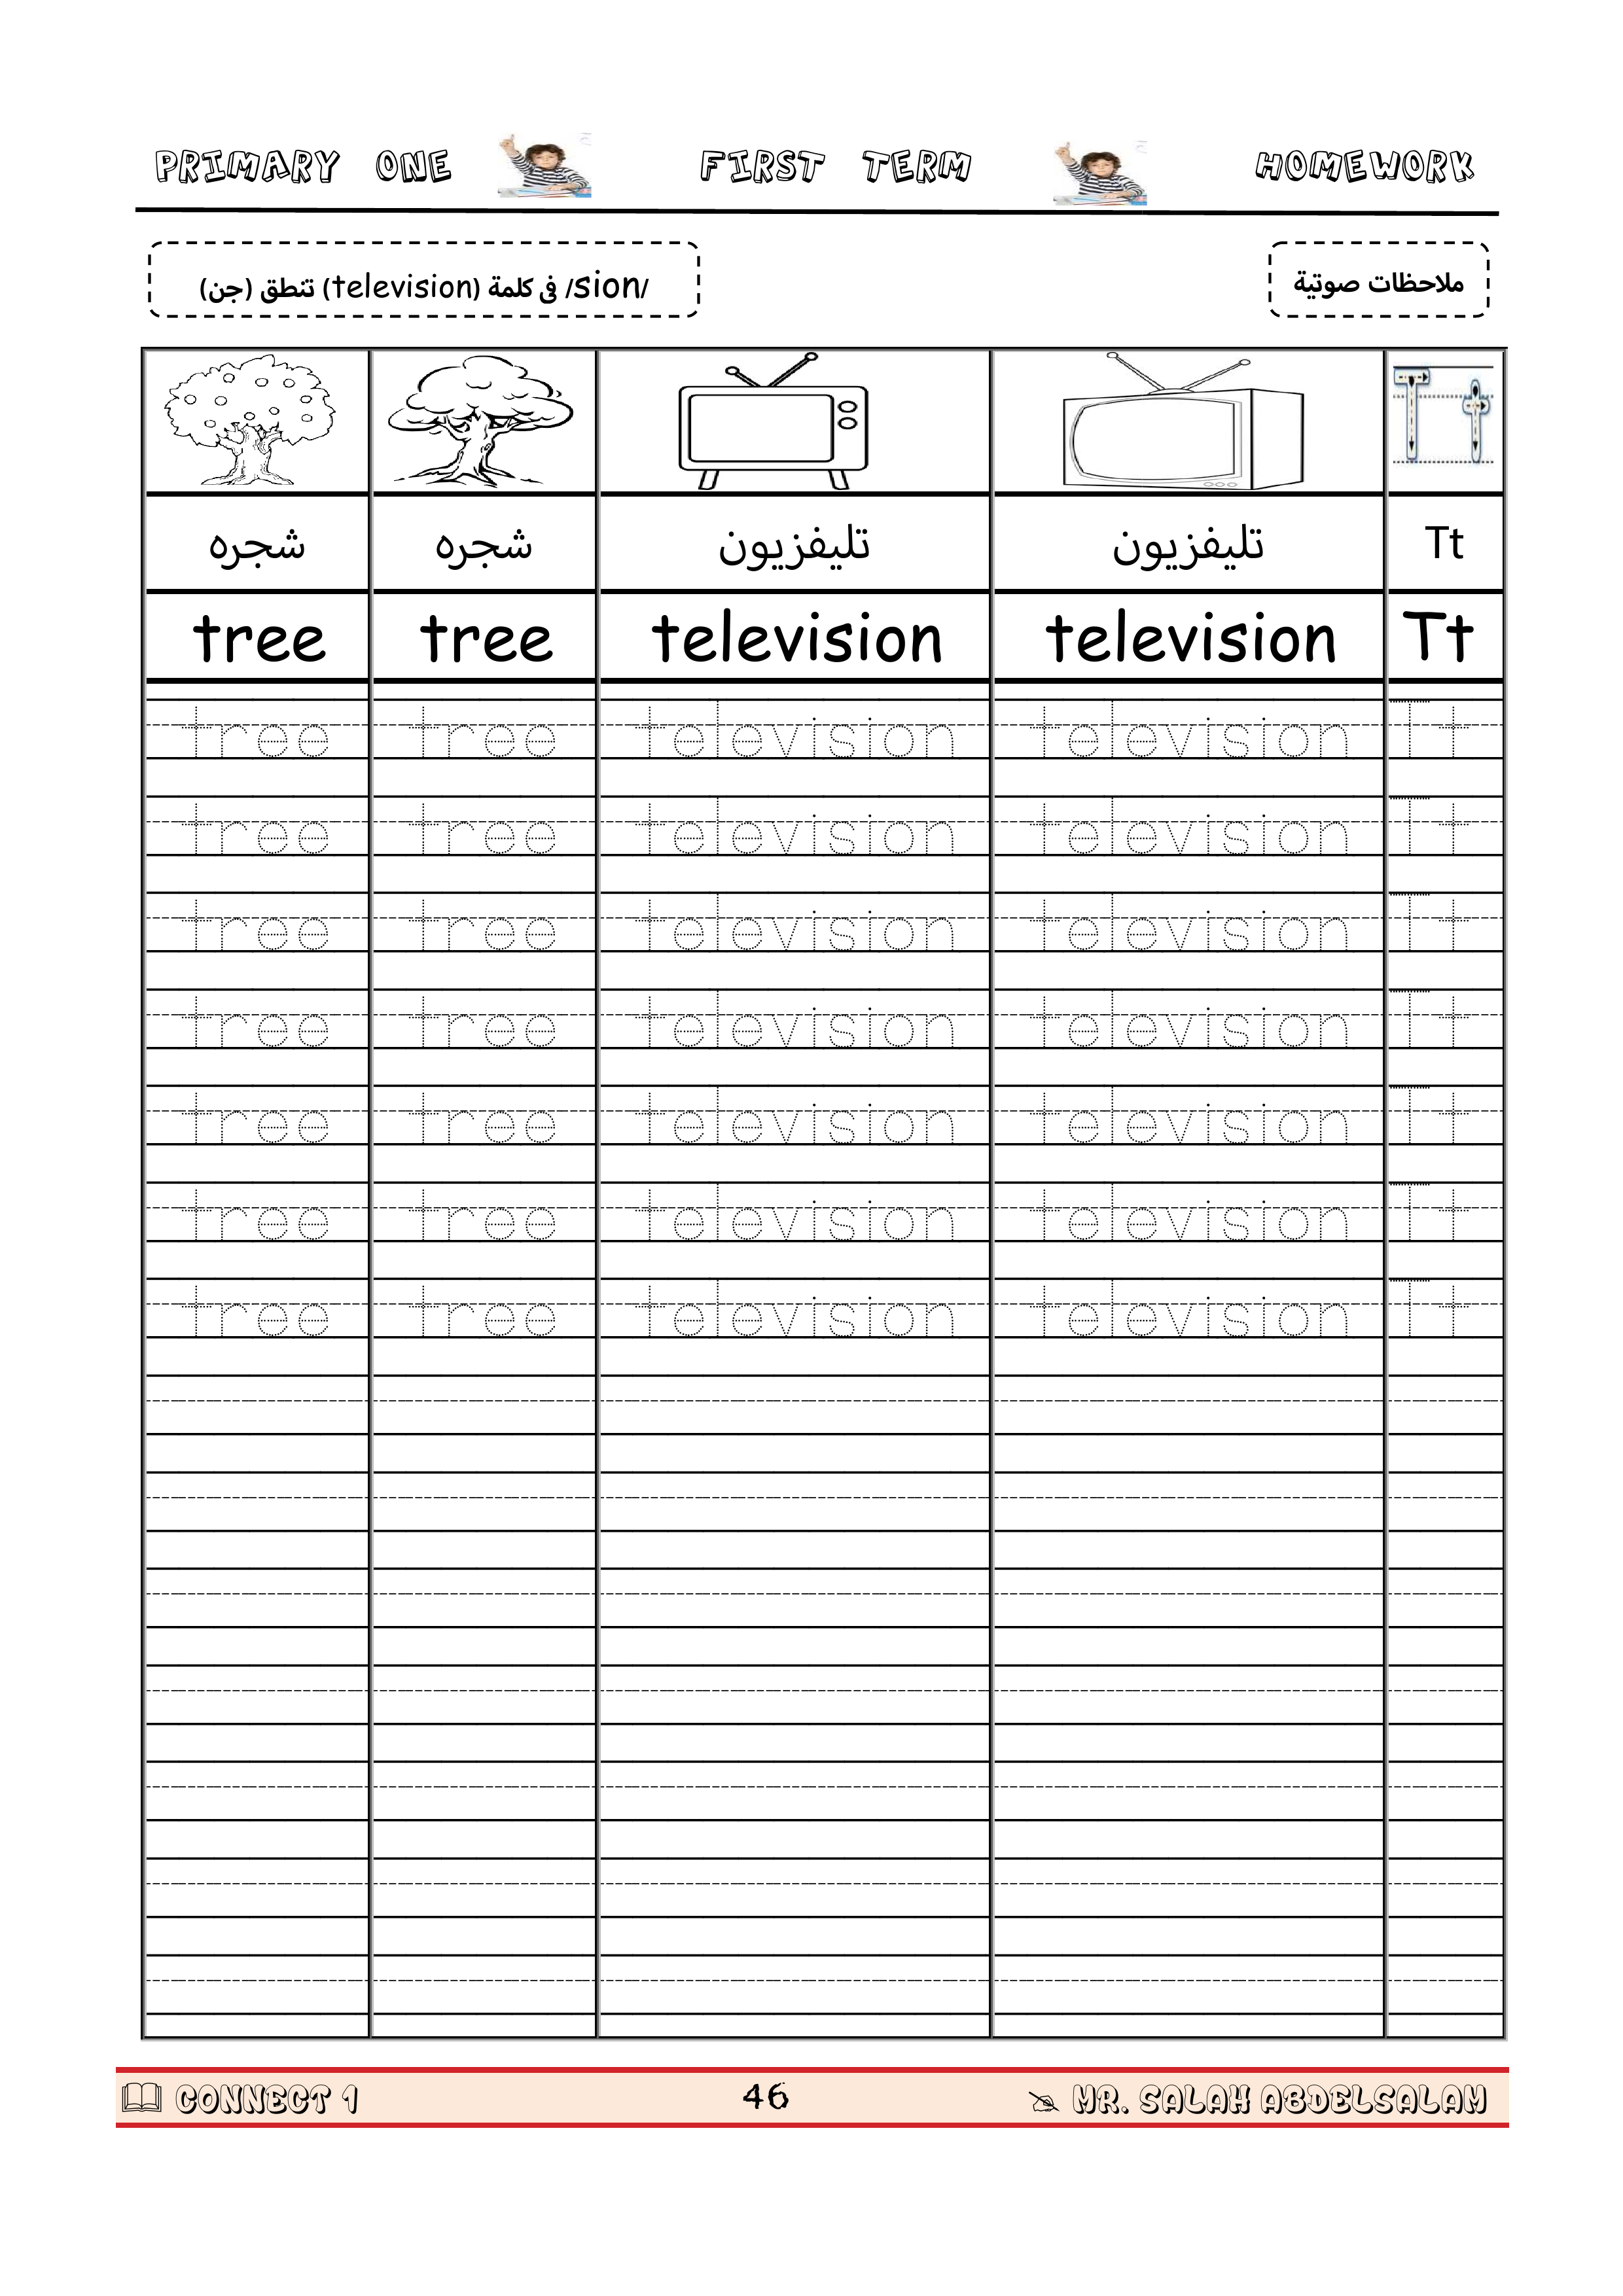 PRIMARY ONE FIRST TERM HOMEWORK
ملاحظات صوتية
/sion/ فى كلمة (television) تنطق (جن)
T t
شجره شجره تليفزيون تليفزيون Tt
tree tree television television Tt
tree tree television television Tt
tree tree television television Tt
tree tree television television Tt
tree tree television television Tt
tree tree television television Tt
tree tree television television Tt
tree tree television television Tt
CONNECT 1 46 MR. SALAH ABDELSALAM